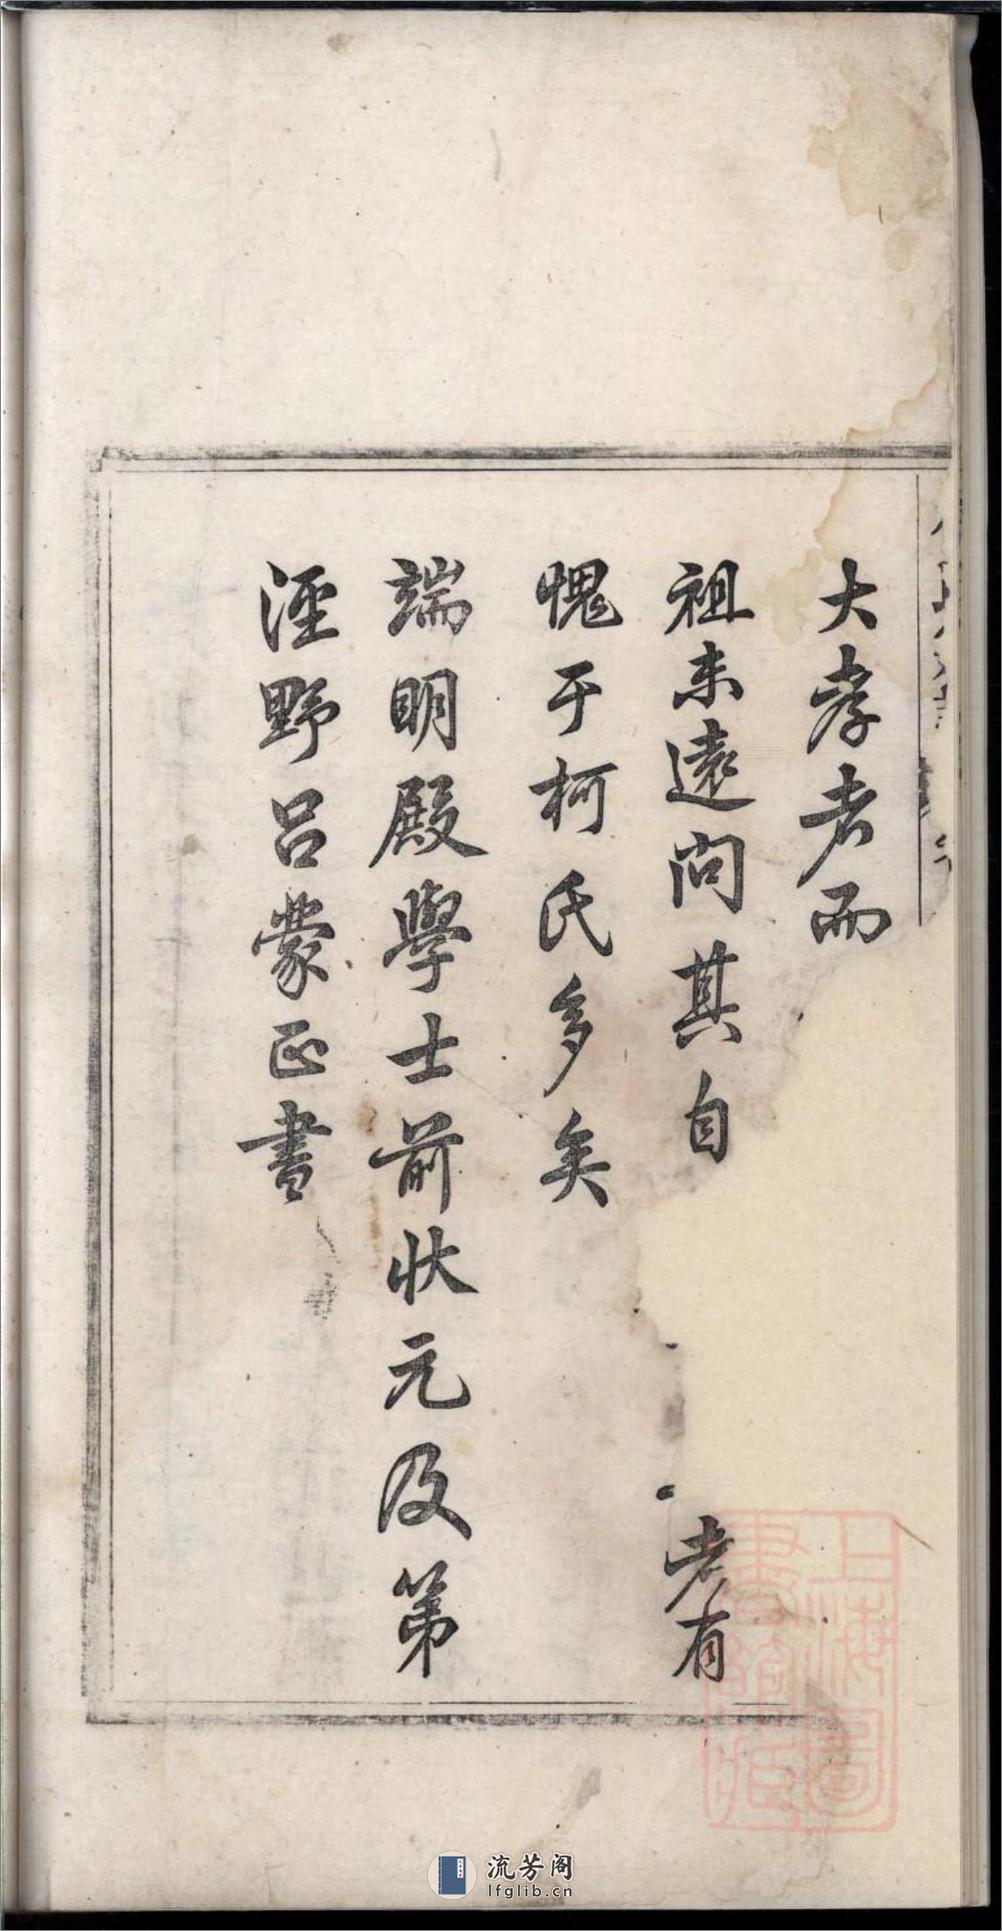 大孝者而
祖未遠問其自
者有
愧于柯氏多矣
端明殿學士前狀元及第
涇野呂蒙正書
上海圖
書館藏
流芳阁
lfglib.cn